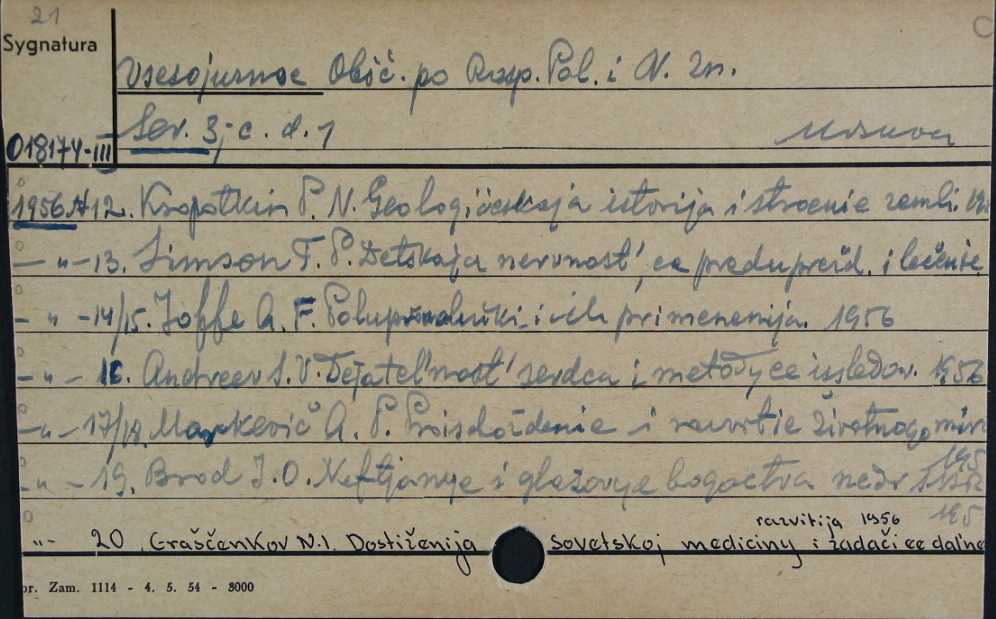 21
C
Sygnatura
Vsesojuznoe Obšč. po Rasp. Pol. i N. Zn.
Ser. 3, c. d. 1
Moskva
018174-III
1956 12. Kropotkin P. N. Geologičeskaja istorija i stroenie zemli.
— " — 13. Simson T. P. Detskaja nervnost', ee preduprežd. i lečenie
— " — 14/15. Joffe A. F. Poluprovodniki i ich primenenija. 1956
— " — 16. Andreev S. V. Dejatel'nost' serdca i metody ee issledov. 1956
— " — 17/18. Markevič A. P. Proischoždenie i razvitie životnogo mira
195
— " — 19. Brod I. O. Neftjanye i gazovye bogactva nedr SSSR
195
razvitija 1956
— " — 20 Graščenkov N.I. Dostiženija sovetskoj mediciny i zadači ee dal'ne
or. Zam. 1114 - 4. 5. 54 - 3000